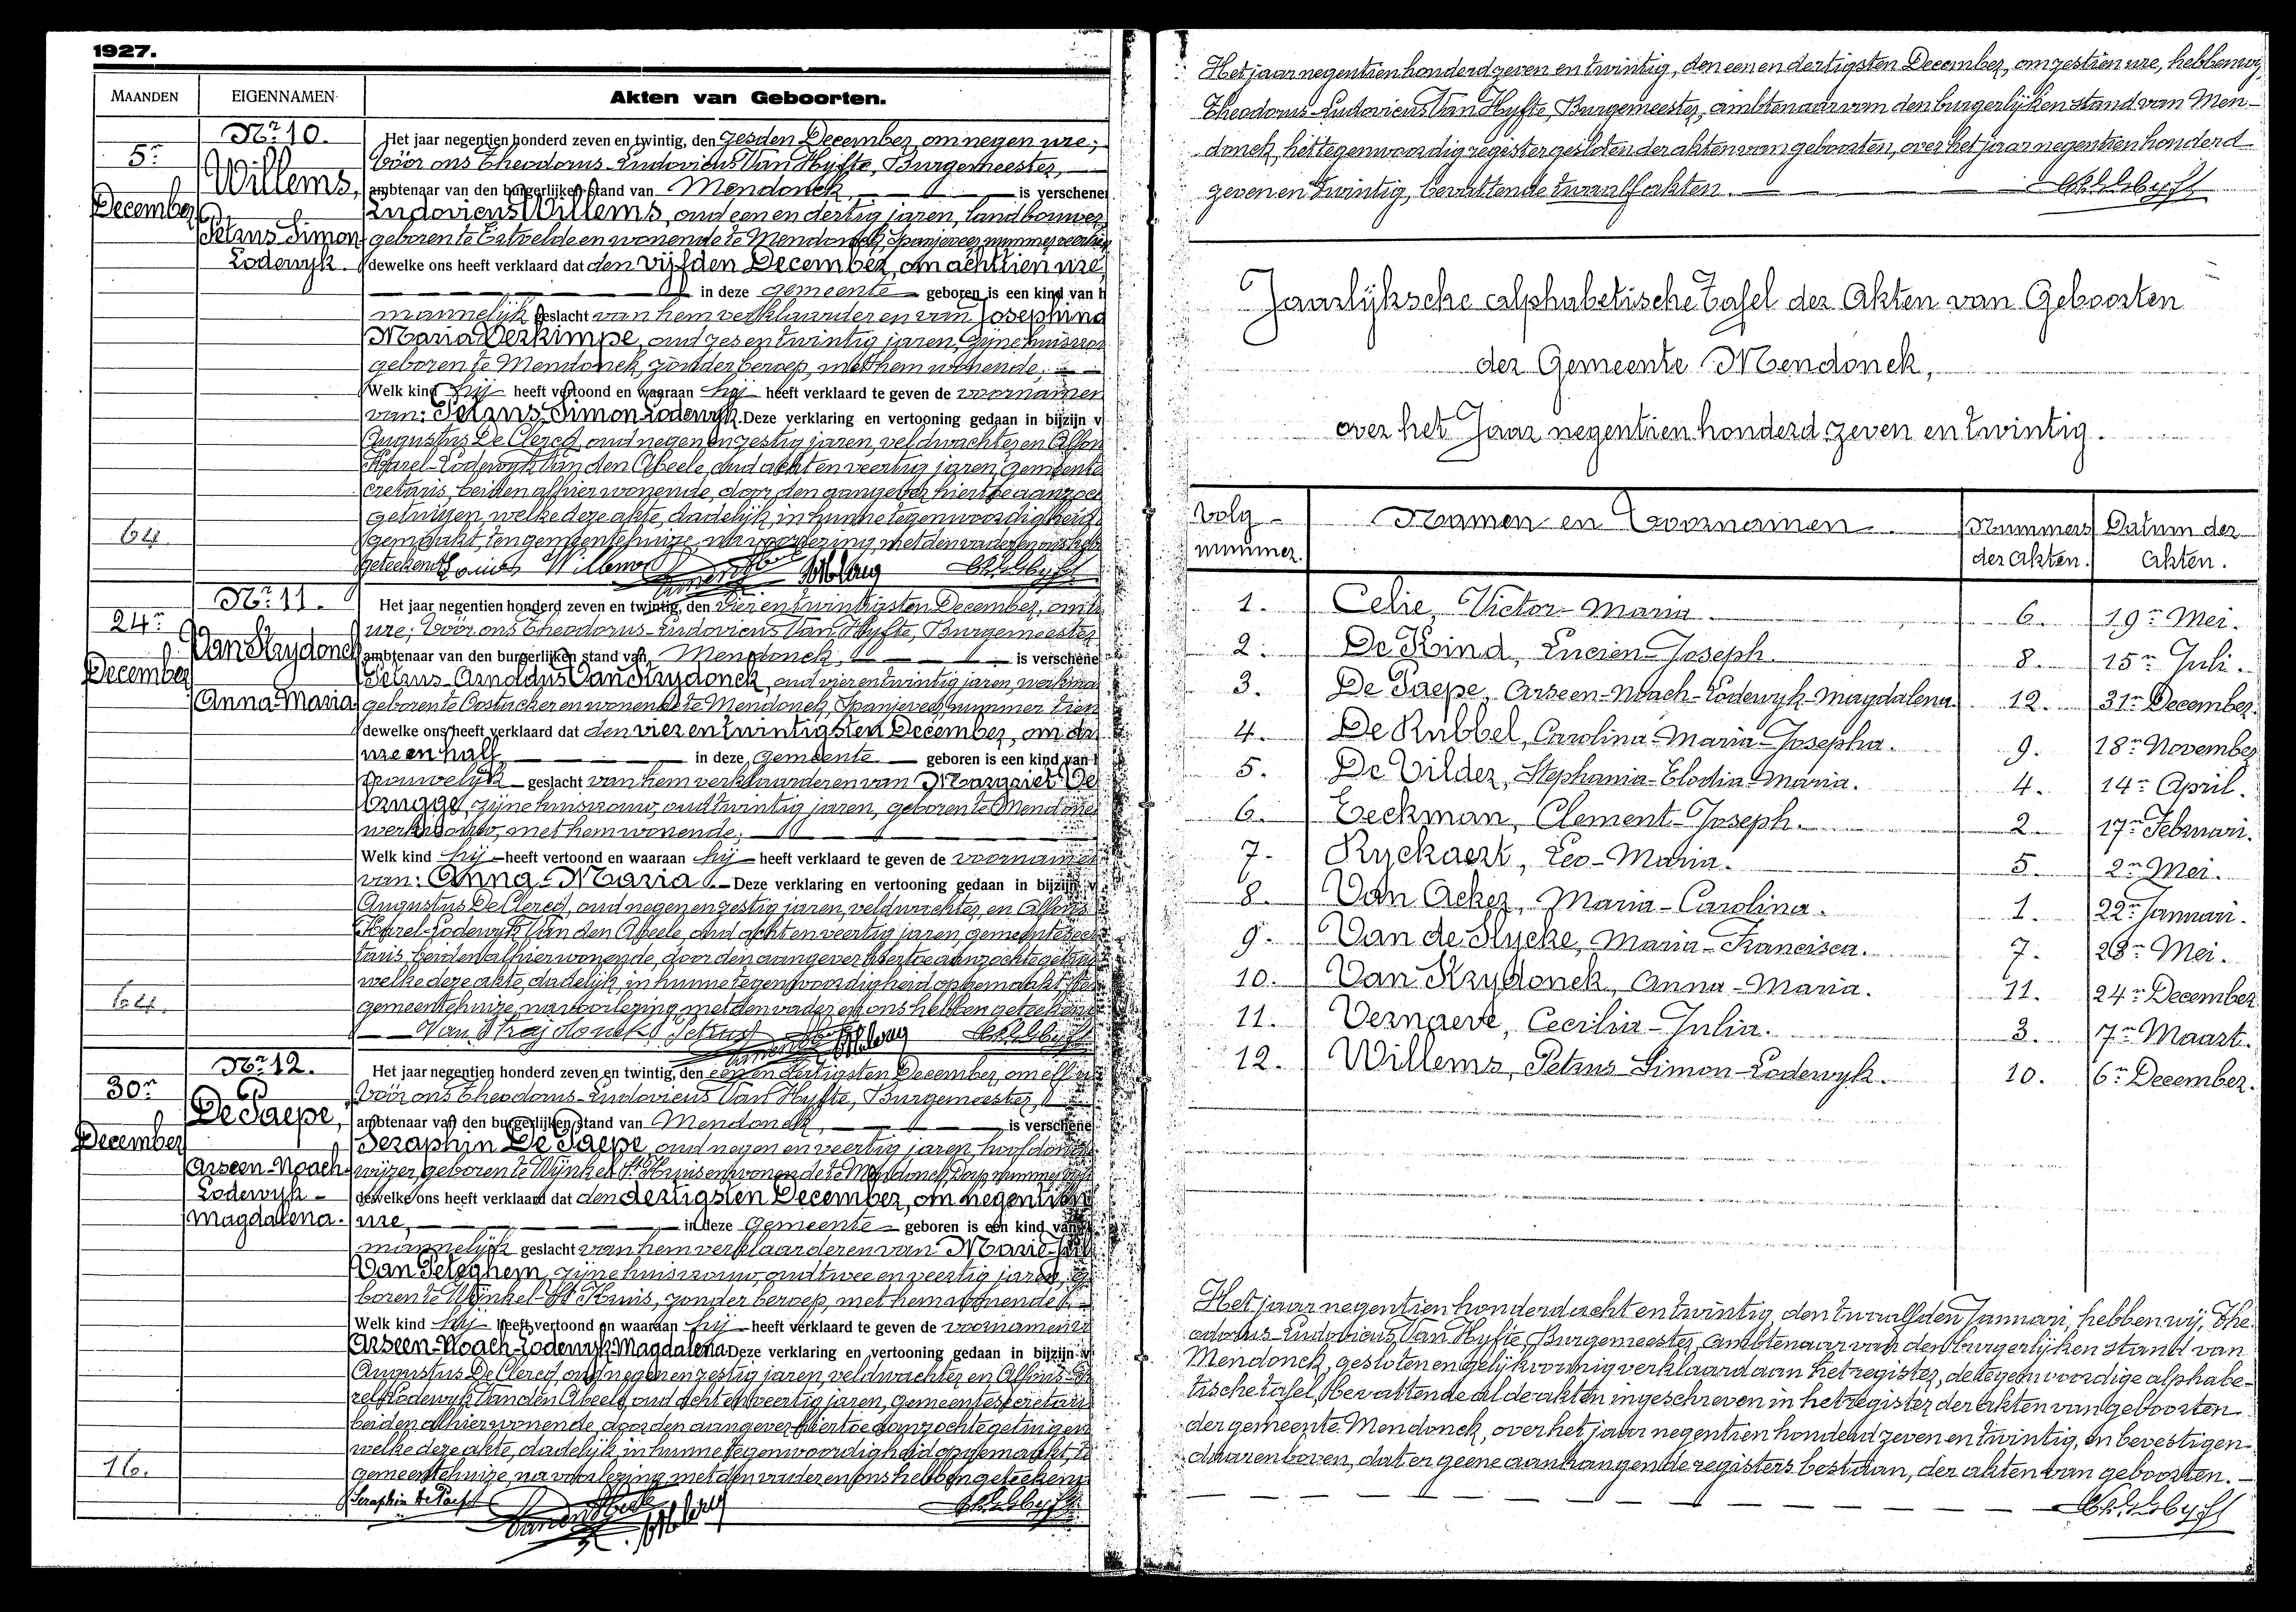 1927.
MAANDEN EIGENNAMEN Akten van Geboorten.
Nr. 10.
5n
December
Willems,
Petrus Simon
Lodewyk.
Het jaar negentien honderd zeven en twintig, den zesden December, om negen ure;
vóór ons Theodorus-Ludovicus Van Hyfte, Burgemeester,
ambtenaar van den burgerlijken stand van Mendonck, is verschenen
Ludovicus Willems, oud een en dertig jaren, landbouwer
geboren te Ertvelde en wonende te Mendonck, Spanjeveer, nummer veertig
dewelke ons heeft verklaard dat den vijfden December, om achttien ure,
in deze gemeente geboren is een kind van h
mannelijk geslacht van hem verklaarder en van Josephina
Maria Verkimpe, oud zes en twintig jaren, zijne huisvrouw
geboren te Mendonck, zonder beroep, met hem wonende;
Welk kind hij heeft vertoond en waaraan hij heeft verklaard te geven de voornamen
van: Petrus-Simon-Lodewyk. Deze verklaring en vertooning gedaan in bijzijn v
Augustus De Clercq, oud negen en zestig jaren, veldwachter en Alfons
Karel-Lodewyk Van den Abeele, oud acht en veertig jaren, gemeente
cretaris, beiden alhier wonende, door den aangever hiertoe aanzoch
getuigen, welke deze akte, dadelijk in hunne tegenwoordigheid
gemaakt, ten gemeentehuize, na voorlezing, met den vader en ons heb
geteekend. Louis Willems
64
Nr. 11.
24n
December
Van Strydonck
Anna-Maria
Het jaar negentien honderd zeven en twintig, den vier en twintigsten December, om
ure; vóór ons Theodorus-Ludovicus Van Hyfte, Burgemeester
ambtenaar van den burgerlijken stand van Mendonck, is verschene
Petrus-Arnoldus Van Strydonck, oud vier en twintig jaren, werkman
geboren te Oostacker en wonende te Mendonck, Spanjeveer, nummer tien
dewelke ons heeft verklaard dat den vier en twintigsten December, om
ure en half in deze gemeente geboren is een kind van h
vrouwelijk geslacht van hem verklaarder en van Margriet De
Brugge, zijne huisvrouw, oud twintig jaren, geboren te Mendonck
werkvrouw, met hem wonende;
Welk kind hij heeft vertoond en waaraan hij heeft verklaard te geven de voornamen
van: Anna-Maria. Deze verklaring en vertooning gedaan in bijzijn v
Augustus De Clercq, oud negen en zestig jaren, veldwachter, en Alfons
Karel-Lodewyk Van den Abeele, oud acht en veertig jaren, gemeentesecre
taris, beiden alhier wonende, door den aangever hiertoe aanzochte getuigen
welke deze akte, dadelijk in hunne tegenwoordigheid opgemaakt ten
gemeentehuize, na voorlezing met den vader en ons hebben geteekend
Van Strijdonck Petrus
Nr. 12.
30n
December
De Paepe,
Arseen-Noach-
Lodewyk-
Magdalena.
Het jaar negentien honderd zeven en twintig, den een en dertigsten December, om elf u
vóór ons Theodorus-Ludovicus Van Hyfte, Burgemeester,
ambtenaar van den burgerlijken stand van Mendonck, is verschene
Seraphin De Paepe, oud negen en veertig jaren, hoofdonder
wijzer, geboren te Wynkel St. Kruis en wonende te Mendonck, Dorp, nummer
dewelke ons heeft verklaard dat den dertigsten December, om negentien
ure, in deze gemeente geboren is een kind van
mannelijk geslacht van hem verklaarder en van Marie
Van Peteghem, zijne huisvrouw, oud twee en veertig jaren, ge
boren te Wynkel-St. Kruis, zonder beroep, met hem wonende;
Welk kind hij heeft vertoond en waaraan hij heeft verklaard te geven de voornamen v
Arseen-Noach-Lodewyk-Magdalena. Deze verklaring en vertooning gedaan in bijzijn v
Augustus De Clercq, oud negen en zestig jaren, veldwachter en Alfons-Ka
rel-Lodewyk Van den Abeele, oud acht en veertig jaren, gemeentesecretaris
beiden alhier wonende, door den aangever hiertoe aanzochte getuigen
welke deze akte, dadelijk in hunne tegenwoordigheid opgemaakt, te
gemeentehuize, na voorlezing met den vader en ons hebben geteekend
16.
Seraphin De Paepe
Het jaar negentien honderd zeven en twintig, den een en dertigsten December, om zestien ure, hebben wij,
Theodorus-Ludovicus Van Hyfte, Burgemeester, ambtenaar van den burgerlijken stand van Men-
donck, het tegenwoordig register gesloten der akten van geboorten, over het jaar negentien honderd
zeven en twintig, bevattende twaalf akten.
Jaarlijksche alphabetische Tafel der Akten van Geboorten
der Gemeente Mendonck,
over het Jaar negentien honderd zeven en twintig.
Volg-nummer. Namen en Voornamen. Nummers der Akten. Datum der Akten.
1. Celie, Victor-Maria. 6. 19n Mei.
2. De Kind, Lucien-Joseph. 8. 15n Juli.
3. De Paepe, Arseen-Noach-Lodewyk-Magdalena 12. 31n December.
4. De Rubbel, Carolina-Maria-Josepha. 9. 18n November
5. De Vilder, Stephania-Elodia-Maria. 4. 14n April.
6. Eeckman, Clement-Joseph. 2. 17n Februari.
7. Ryckaert, Leo-Maria. 5. 2n Mei.
8. Van Acker, Maria-Carolina. 1. 22n Januari.
9. Van de Slycke, Maria-Francisca. 7. 28n Mei.
10. Van Strydonck, Anna-Maria. 11. 24n December
11. Vernaeve, Cecilia-Julia. 3. 7n Maart.
12. Willems, Petrus Simon-Lodewyk. 10. 6n December.
Het jaar negentien honderd acht en twintig, den twaalfden Januari, hebben wij, The-
odorus-Ludovicus Van Hyfte, Burgemeester, ambtenaar van den burgerlijken stand van
Mendonck, gesloten en gelijkvormig verklaard aan het register, de tegenwoordige alphabe-
tische tafel, bevattende al de akten ingeschreven in het register der akten van geboorten
der gemeente Mendonck, over het jaar negentien honderd zeven en twintig, en bevestigen
daarenboven, dat er geene aanhangende registers bestaan, der akten van geboorten.